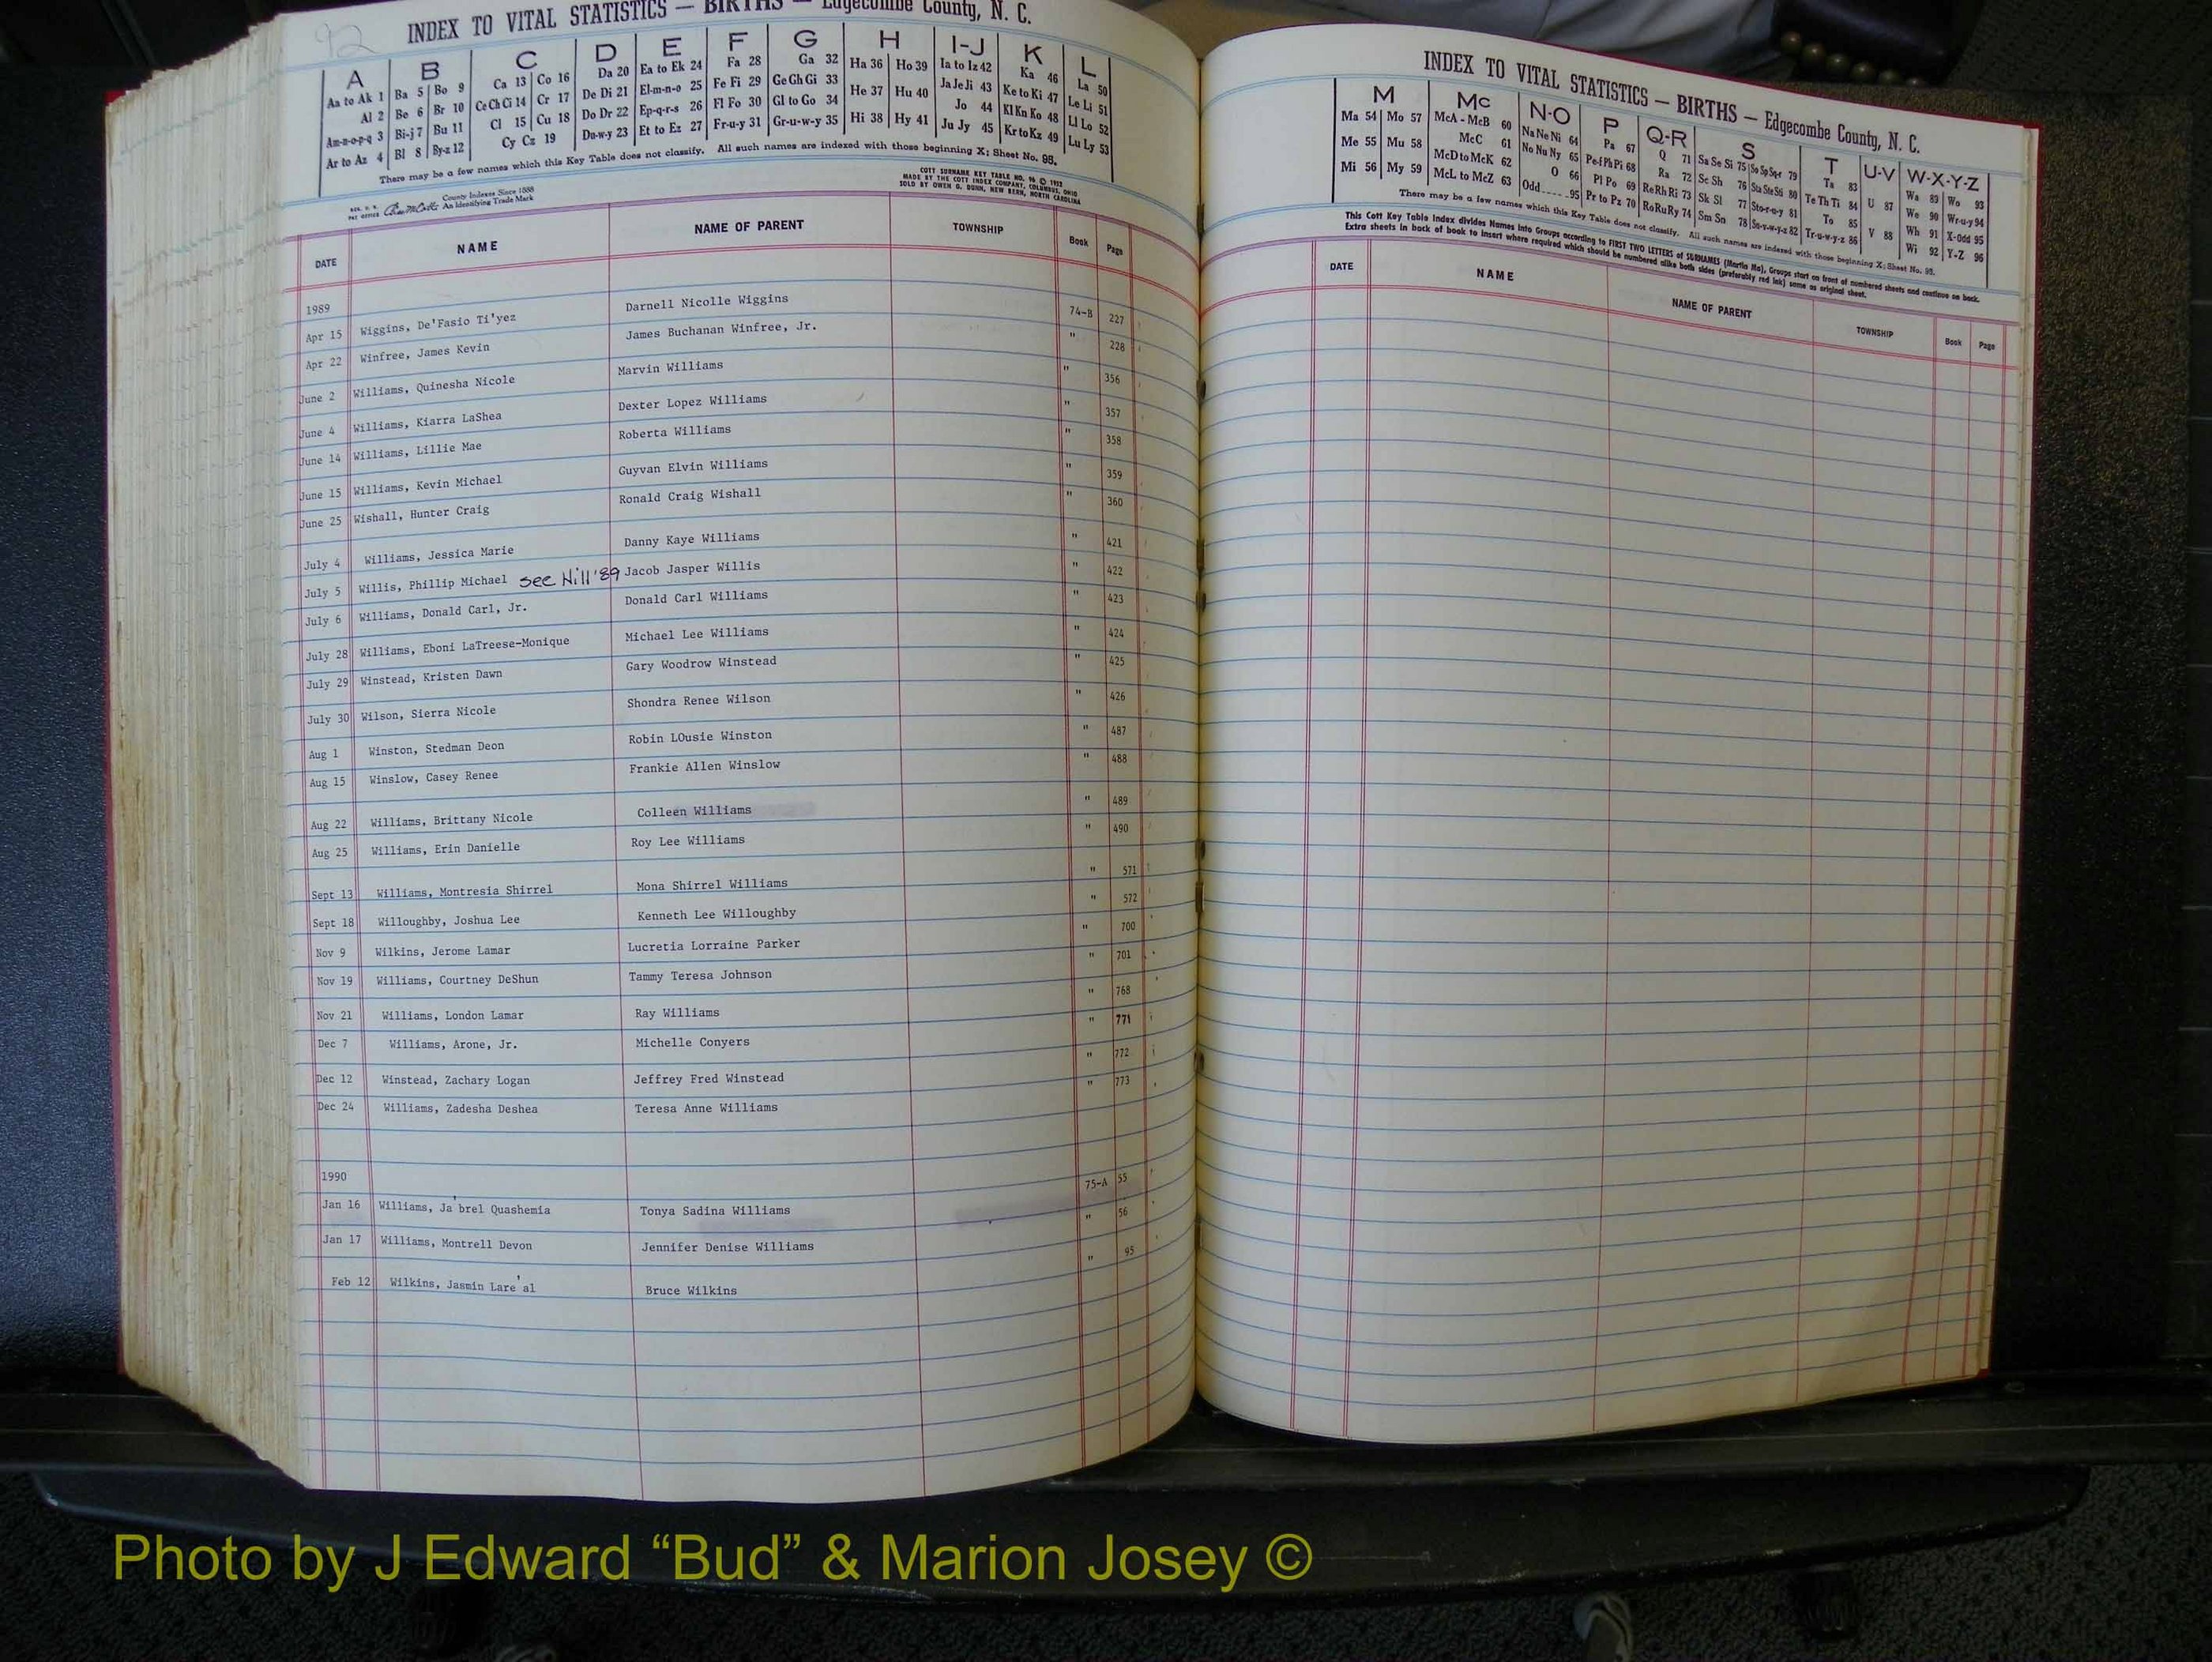 92
INDEX TO VITAL STATISTICS — BIRTHS — Edgecombe County, N. C.
A B C D E F G H I-J K L
Aa to Ak 1 Ba 5 Bo 9 Ca 13 Co 16 Da 20 Ea to Ek 24 Fa 28 Ga 32 Ha 36 Ho 39 Ia to Iz 42 Ka 46 La 50
Al 2 Be 6 Br 10 Ce Ch Ci 14 Cr 17 De Di 21 El-m-n-o 25 Fe Fi 29 Ge Gh Gi 33 He 37 Hu 40 Ja Je Ji 43 Ke to Ki 47 Le Li 51
Am-n-o-p-q 3 Bi-j 7 Bu 11 Cl 15 Cu 18 Do Dr 22 Ep-q-r-s 26 Fl Fo 30 Gl to Go 34 Hi 38 Hy 41 Jo 44 Kl Kn Ko 48 Ll Lo 52
Ar to Az 4 Bl 8 By-z 12 Cy Cz 19 Du-w-y 23 Et to Ez 27 Fr-u-y 31 Gr-u-w-y 35 Ju Jy 45 Kr to Kz 49 Lu Ly 53
There may be a few names which this Key Table does not classify. All such names are indexed with those beginning X; Sheet No. 98.
County Indexes Since 1888
An Identifying Trade Mark
COTT SURNAME KEY TABLE NO. 96 © 1952
MADE BY THE COTT INDEX COMPANY, COLUMBUS, OHIO
SOLD BY OWEN G. DUNN, NEW BERN, NORTH CAROLINA
DATE NAME NAME OF PARENT TOWNSHIP Book Page
1989
Apr 15 Wiggins, De'Fasio Ti'yez Darnell Nicolle Wiggins 74-B 227
Apr 22 Winfree, James Kevin James Buchanan Winfree, Jr. " 228
June 2 Williams, Quinesha Nicole Marvin Williams " 356
June 4 Williams, Kiarra LaShea Dexter Lopez Williams " 357
June 14 Williams, Lillie Mae Roberta Williams " 358
June 15 Williams, Kevin Michael Guyvan Elvin Williams " 359
June 25 Wishall, Hunter Craig Ronald Craig Wishall " 360
July 4 Williams, Jessica Marie Danny Kaye Williams " 421
July 5 Willis, Phillip Michael see Hill '89 Jacob Jasper Willis " 422
July 6 Williams, Donald Carl, Jr. Donald Carl Williams " 423
July 28 Williams, Eboni LaTreese-Monique Michael Lee Williams " 424
July 29 Winstead, Kristen Dawn Gary Woodrow Winstead " 425
July 30 Wilson, Sierra Nicole Shondra Renee Wilson " 426
Aug 1 Winston, Stedman Deon Robin LOusie Winston " 487
Aug 15 Winslow, Casey Renee Frankie Allen Winslow " 488
Aug 22 Williams, Brittany Nicole Colleen Williams " 489
Aug 25 Williams, Erin Danielle Roy Lee Williams " 490
Sept 13 Williams, Montresia Shirrel Mona Shirrel Williams " 571
Sept 18 Willoughby, Joshua Lee Kenneth Lee Willoughby " 572
Nov 9 Wilkins, Jerome Lamar Lucretia Lorraine Parker " 700
Nov 19 Williams, Courtney DeShun Tammy Teresa Johnson " 701
Nov 21 Williams, London Lamar Ray Williams " 768
Dec 7 Williams, Arone, Jr. Michelle Conyers " 771
Dec 12 Winstead, Zachary Logan Jeffrey Fred Winstead " 772
Dec 24 Williams, Zadesha Deshea Teresa Anne Williams " 773
1990
Jan 16 Williams, Ja'brel Quashemia Tonya Sadina Williams 75-A 55
Jan 17 Williams, Montrell Devon Jennifer Denise Williams " 56
Feb 12 Wilkins, Jasmin Lare'al Bruce Wilkins " 95
INDEX TO VITAL STATISTICS — BIRTHS — Edgecombe County, N. C.
M Mc N-O P Q-R S T U-V W-X-Y-Z
Ma 54 Mo 57 McA - McB 60 Na Ne Ni 64 Pa 67 Q 71 Sa Se Si 75 So Sp Sq-r 79 Ta 83 U 87 Wa 89 Wo 93
Me 55 Mu 58 McC 61 No Nu Ny 65 Pe-f Ph Pi 68 Ra 72 Sc Sh 76 Sta Ste Sti 80 Te Th Ti 84 V 88 We 90 Wr-u-y 94
Mi 56 My 59 McD to McK 62 O 66 Pl Po 69 Re Rh Ri 73 Sk Sl 77 Sto-r-u-y 81 To 85 Wh 91 X-Odd 95
McL to McZ 63 Odd 95 Pr to Pz 70 Ro Ru Ry 74 Sm Sn 78 Su-v-w-y-z 82 Tr-u-w-y-z 86 Wi 92 Y-Z 96
There may be a few names which this Key Table does not classify. All such names are indexed with those beginning X; Sheet No. 98.
This Cott Key Table Index divides Names into Groups according to FIRST TWO LETTERS of SURNAMES (Martin Ma), Groups start on front of numbered sheets and continue on back.
Extra sheets in back of book to insert where required which should be numbered alike both sides (preferably red ink) same as original sheet.
DATE NAME NAME OF PARENT TOWNSHIP Book Page
Photo by J Edward “Bud” & Marion Josey ©